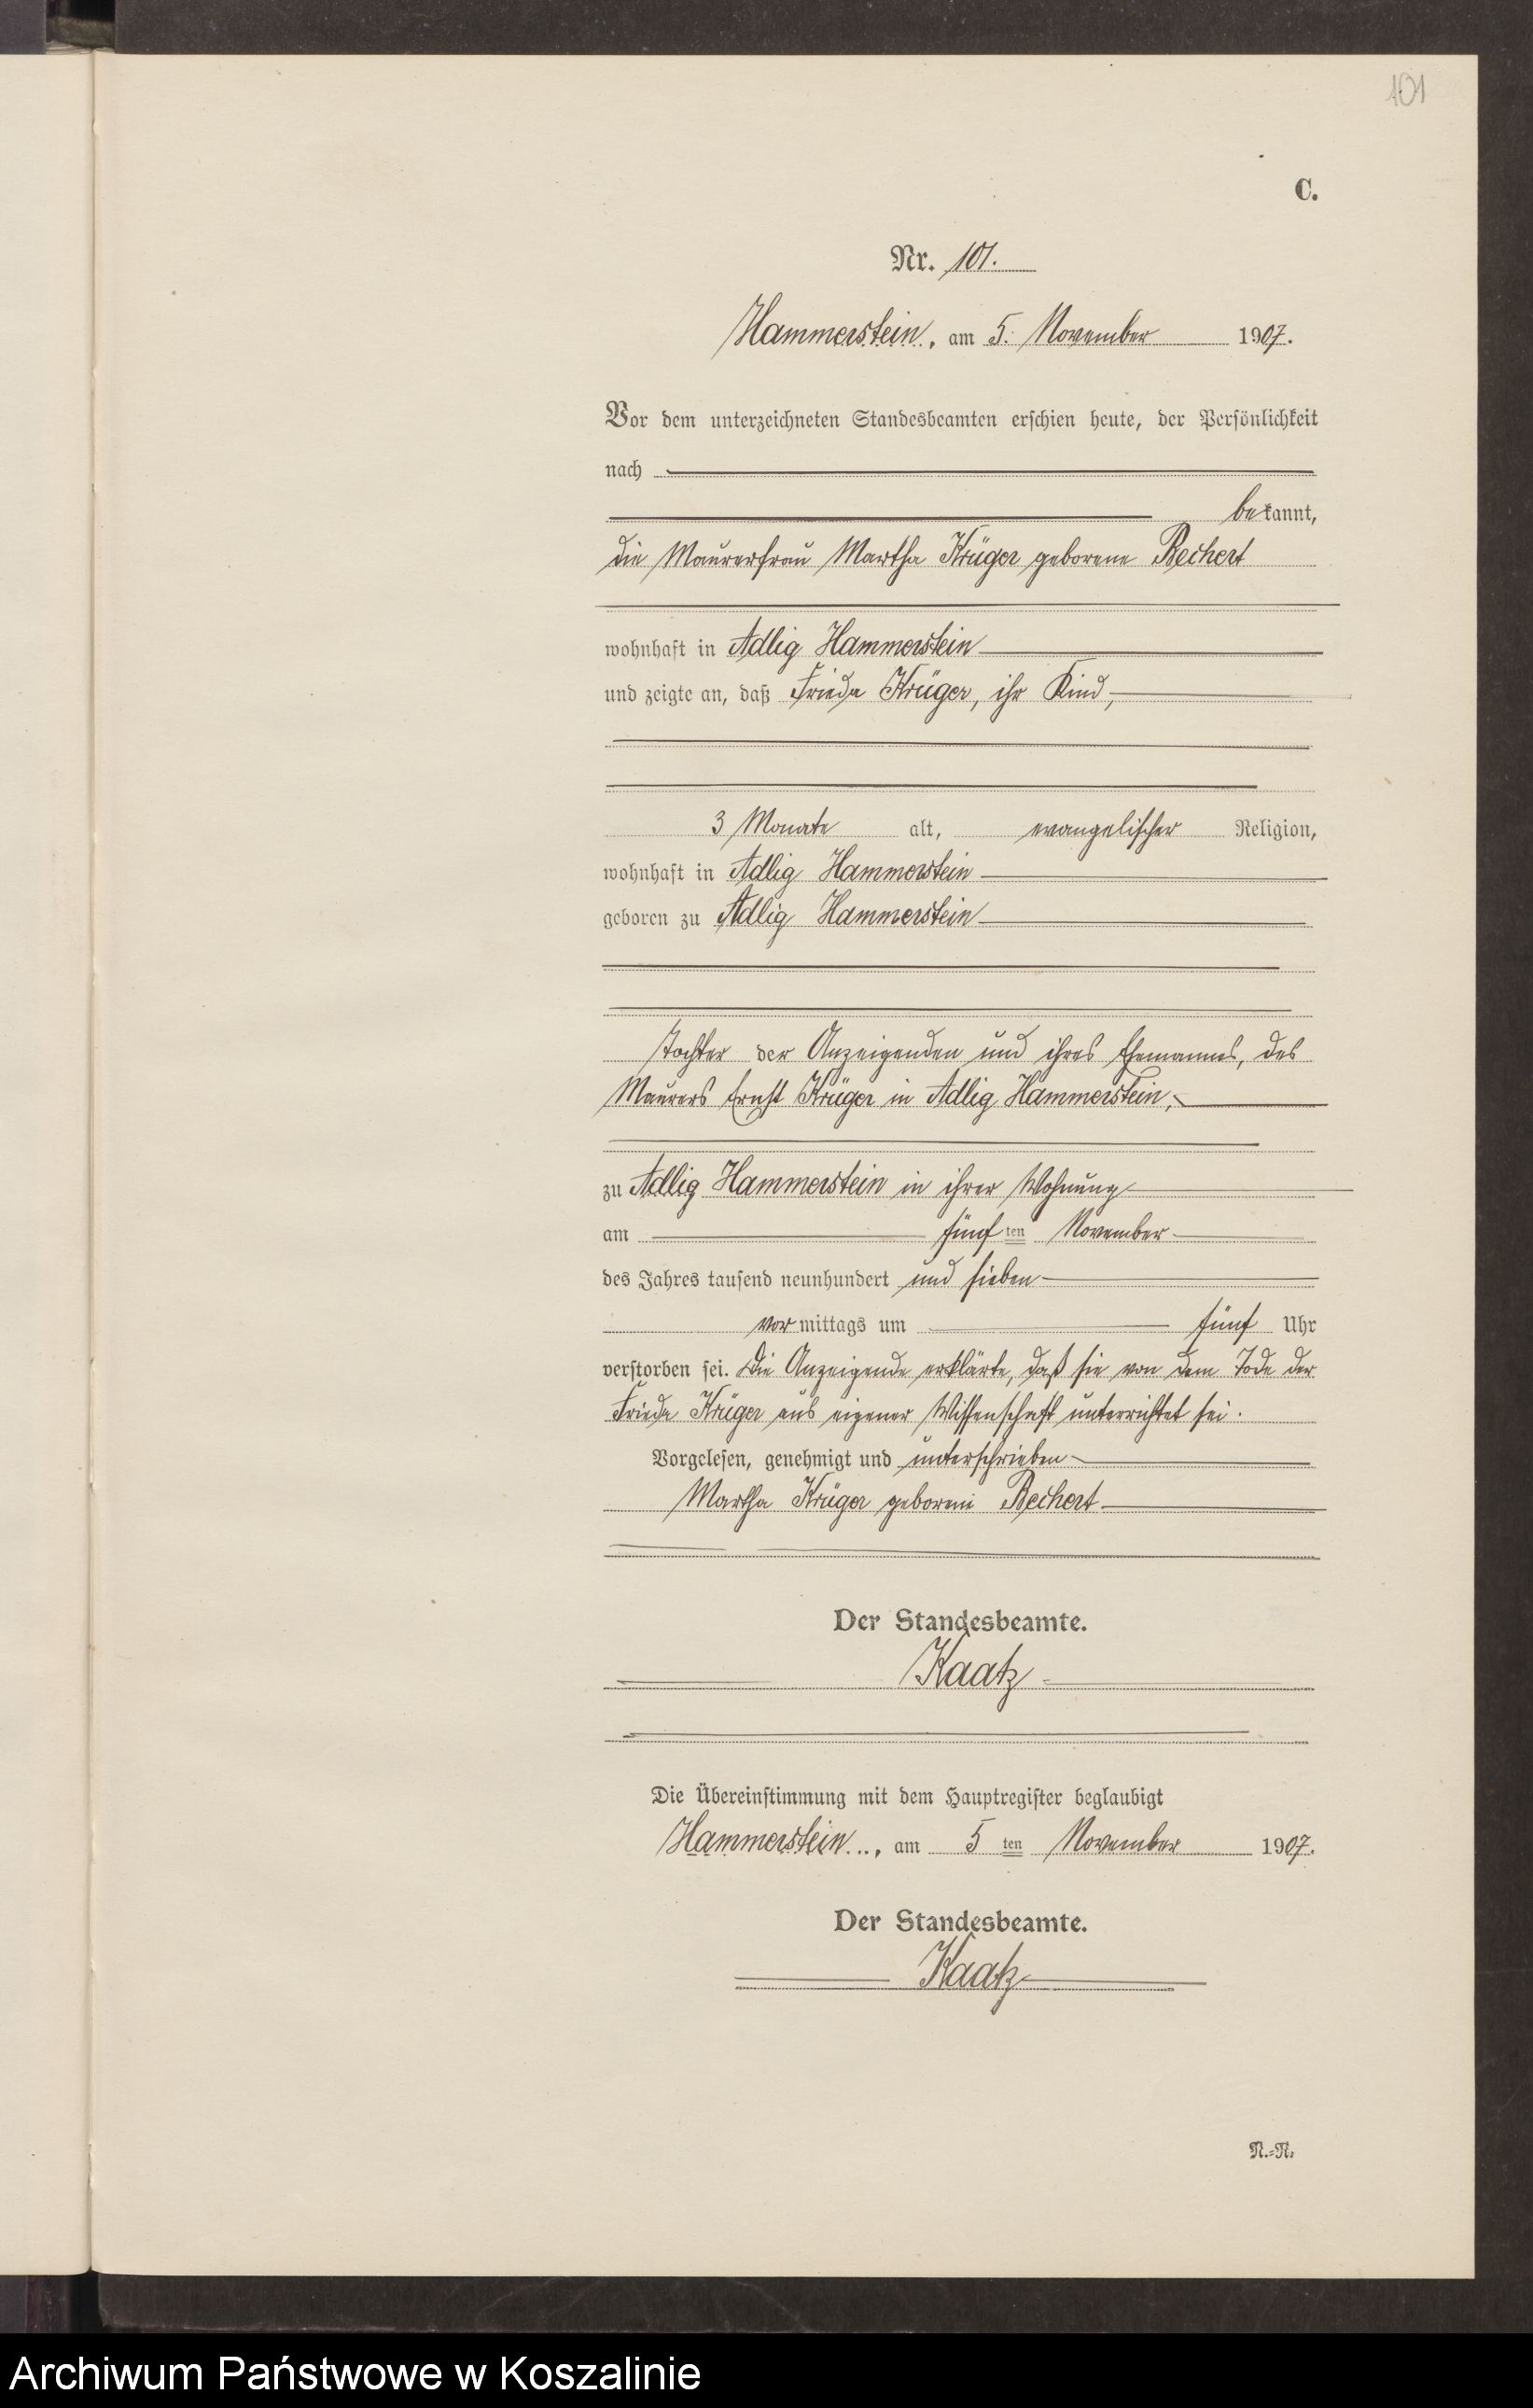 101
C.
Nr. 101.
Hammerstein, am 5. November 1907.
Vor dem unterzeichneten Standesbeamten erschien heute, der Persönlichkeit
nach
bekannt,
die Maurerfrau Martha Krüger geborene Reichert
wohnhaft in Adlig Hammerstein
und zeigte an, daß Frieda Krüger, ihr Kind,
3 Monate alt, evangelischer Religion,
wohnhaft in Adlig Hammerstein
geboren zu Adlig Hammerstein
Tochter der Anzeigenden und ihres Ehemannes, des
Maurers Ernst Krüger in Adlig Hammerstein,
zu Adlig Hammerstein in ihrer Wohnung
am fünften November
des Jahres tausend neunhundert und sieben
vormittags um fünf Uhr
verstorben sei. Die Anzeigende erklärte, daß sie von dem Tode der
Frieda Krüger aus eigener Wissenschaft unterrichtet sei.
Vorgelesen, genehmigt und unterschrieben
Martha Krüger geborene Reichert
Der Standesbeamte.
Kaatz
Die Übereinstimmung mit dem Hauptregister beglaubigt
Hammerstein, am 5ten November 1907.
Der Standesbeamte.
Kaatz
N.=R.
Archiwum Państwowe w Koszalinie